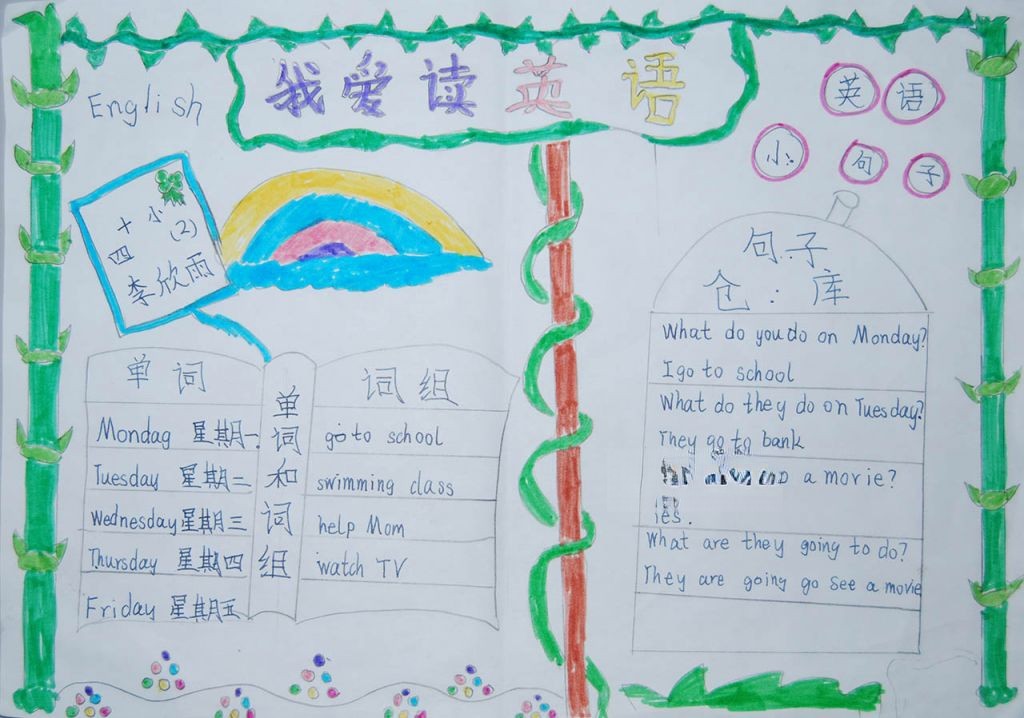 我爱读英语
English
十小(2)
四
李欣雨
英语
小句子
单词
Mondag 星期一
Tuesday 星期二
Wednesday 星期三
Thursday 星期四
Friday 星期五
单词和词组
词组
go to school
swimming class
help Mom
watch TV
句子
仓:库
What do you do on Monday?
I go to school
What do they do on Tuesday?
They go to bank
a movie?
What are they going to do?
They are going go see a movie